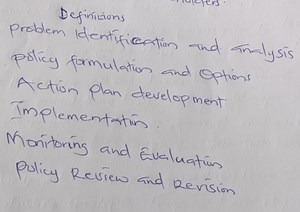 Definitions
problem Identification and analysis
policy formulation and Options
Action plan development
Implementatin.
Monitoring and Evaluation
policy Review and Revision